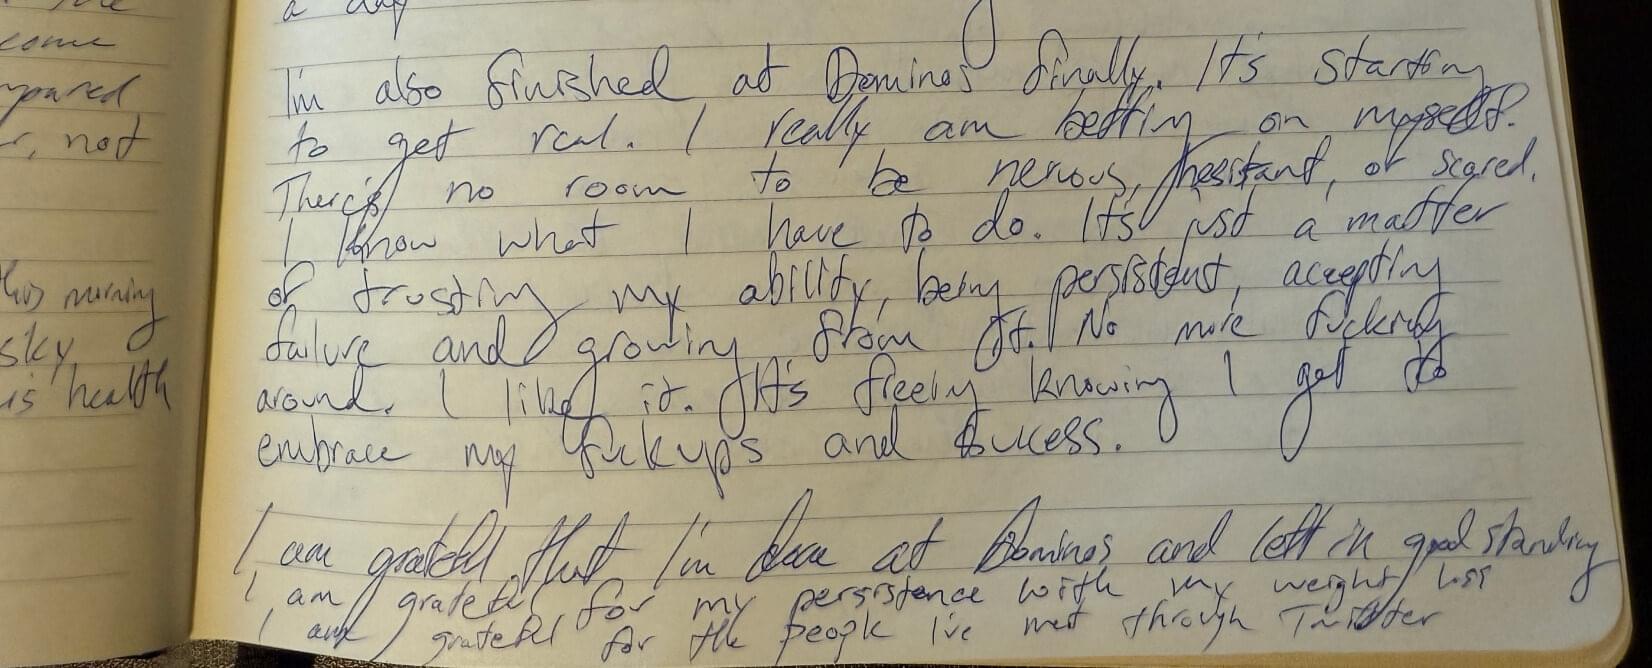 come
not
this morning
sky
is health
a day
I'm also finished at Dominos finally. It's starting
to get real. I really am betting on myself.
There's no room to be nervous, hesitant, or scared.
I know what I have to do. It's just a matter
of trusting my ability, being persistent, accepting
failure and growing from it. No more fucking
around. I like it. It's freeing knowing I get to
embrace my fuckups and sucess.
I am grateful that I'm done at Dominos and left in good standing
I am grateful for my persistence with my weight loss
I am grateful for the people I've met through Twitter